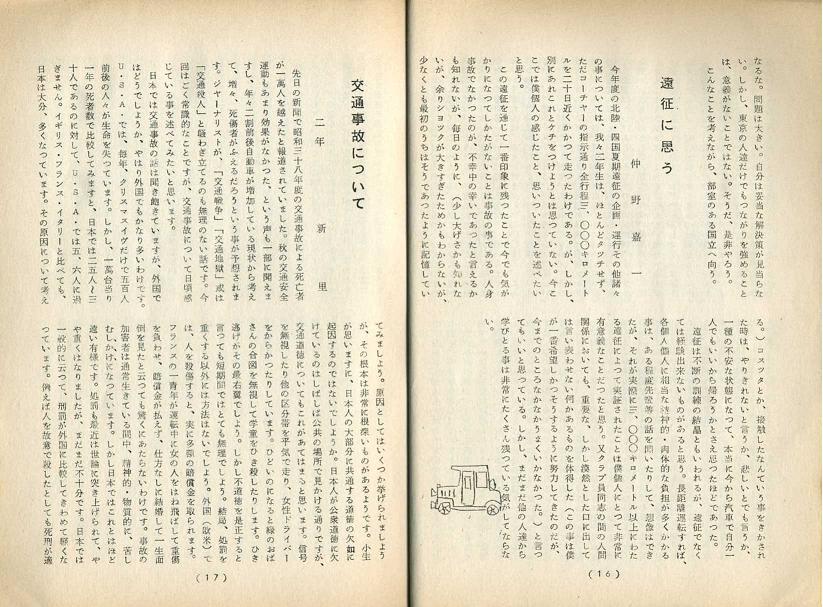 なるな。問題は大きい。自分は妥当な解決策が見当らな
い。しかし、東京の人達だけでもつながりを強めること
は、意義がないことではない。そうだ、是非やろう。
こんなことを考えながら、部室のある国立へ向う。
遠征に思う
仲野嘉一
今年度の北陸・四国夏期遠征の企画・運行その他諸々
の事については、我々二年生は、ほとんどタッチせず、
ただコーチャーの指示通り全行程三、〇〇〇キロメート
ルを二十日近くかかつて走つたわけである。が、しかし、
別にあれこれとケチをつけようとは思つていない。今こ
こでは僕個人の感じたこと、思いついたことを述べたい
と思う。
この遠征を通じて一番印象に残つたことで今でも気が
かりになつてしかたがないことは事故の事である。人身
事故でなかつたのが、不幸中の幸いであつたと言えるか
も知れないが、毎日のように、(少し大げさかも知れな
いが、余りショックが大きすぎたためかもわからないが、
少なくとも最初のうちはそうであつたように記憶してい
る。)コスッタとか、接触したなんていう事をきかされ
た時は、やりきれないと言うか、悲しいとでも言うか、
一種の不安な状態になつて、本当に今から汽車で自分一
人でもいいから帰ろうかとさえ思つたほどであつた。
遠征は不断の訓練の結晶ともいわれるが、遠征でなく
ては経験出来ないものがあると思う。長距離運転すれば、
各個人個人に相当な精神的・肉体的な負担が多くかかる
事は、ある程度先輩等の話を聞いたりして、想像はでき
たが、それが実際に三、〇〇〇キロメートル以上にわた
る遠征によつて実証されたことは僕個人にとつて非常に
有意義なことだつたと思う。又クラブ員同志の間の人間
関係においても、重要な、しかし漠然とした口に出して
は言い表わせない何かあるものを体得した(この事は僕
が一番希望しかつそうするように努力してきたのだが、
今までのところなかなかうまくいかなかった。)と言つ
てもいいと思つている。しかし、まだまだ他の人達から
学びとる事は非常にたくさん残つている気がしてならな
い。
(16)
交通事故について
二年 新 里
先日の新聞で昭和三十八年度の交通事故による死亡者
が一万人を越えたと報道されていました。秋の交通安全
運動もあまり効果がなかつた、という声も一部に聞えま
すし、年々二割前後自動車が増加している現状から考え
て、増々、死傷者がふえるだろうという事が予想されま
す。ジャーナリストが、「交通戦争」「交通地獄」或は
「交通殺人」と騒わぎ立てるのも無理のない話です。今
回はごく常識的なことですが、交通事故について日頃感
じている事を述べてみたいと思います。
日本では交通事故の話は聞き飽きていますが、外国で
はどうでしょうか。やはり外国でもかなり多いわけです。
U・S・A・では、毎年、クリスマスイヴだけで五百人
前後の人々が生命を失つています。しかし、一万台当り
一年の死者数で比較してみますと、日本では二五人〜三
十人であるのに対して、U・S・A・では五、六人に過
ぎません。イギリス・フランス・イタリーと比べても、
日本は大分、多くなつています。その原因について考え
てみましょう。原因としてはいくつか挙げられましよう
が、その根本は非常に根深いものがあるようです。小生
が思いますに、日本人の大部分に共通する道徳の欠如に
起因するのではないでしようか。日本人が公衆道徳に欠
けているのはしばしば公共の場所で見かける通りですが、
交通道徳についてもこれがあてはまると思います。信号
を無視したり他の区分帯を平気で走り、女性ドライバー
をからかつたりしています。ひどいのになると緑のおば
さんの合図を無視して学童をひき殺したりします。ひき
逃げがその最右翼でしょう。しかし不道徳を是正すると
言つても短期間ではとても無理でしよう。結局、処罰を
重くする以外には方法はないでしよう。外国(欧米)で
は、人を殺傷すると、実に多額の賠償金を取られます。
フランスの一青年が運転中に女の人をはね飛ばして重傷
を負わせ、賠償金が払えず、仕方なしに結婚して一生面
倒を見たと云つても驚くにあたらないわけです。事故の
加害者は通常生きている間中、精神的・物質的に、苦し
むしかけになつています。しかし日本ではこれとはほど
遠い有様です。処罰も最近は世論に突き上げられて、や
や重くはなりましたが、まだまだ不十分です。日本では
一般的に云つて、刑罰が外国に比較してきわめて軽くな
つています。例えば人を故意で殺したとしても死刑が適
(17)